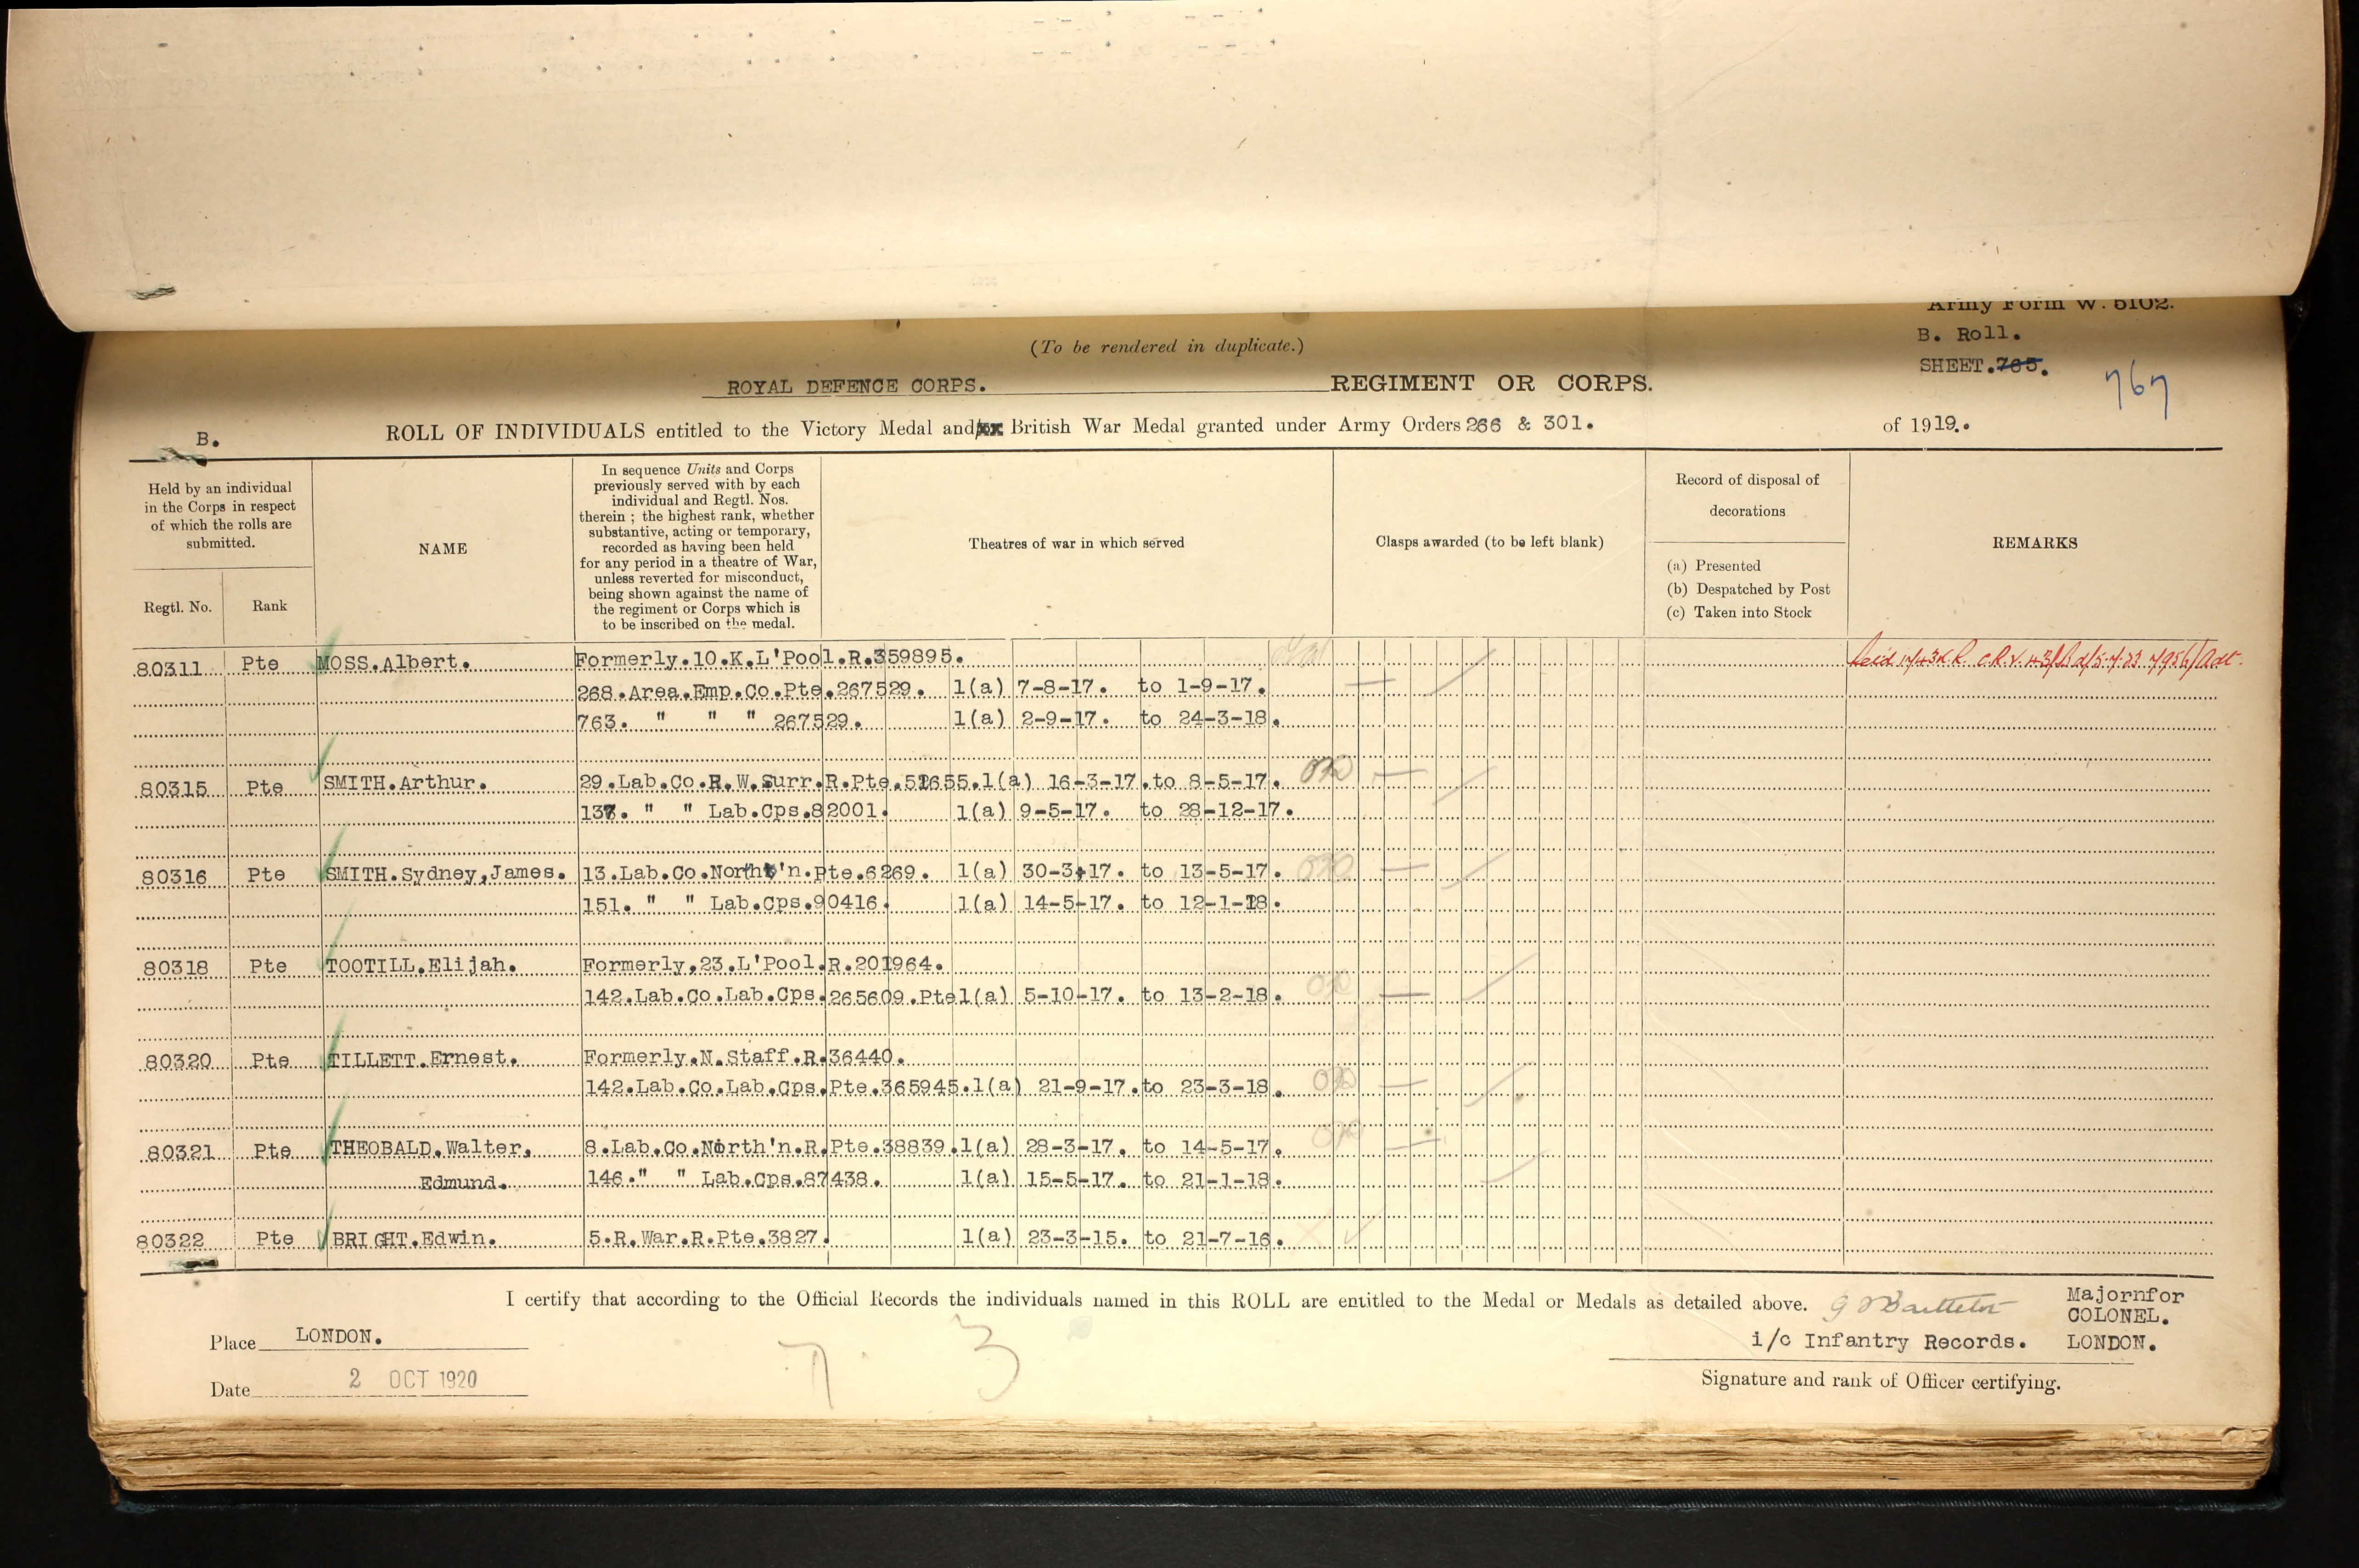 Army Form W. 5102.
(To be rendered in duplicate.)
B. Roll.
SHEET.765.
767
ROYAL DEFENCE CORPS. REGIMENT OR CORPS.
B.
ROLL OF INDIVIDUALS entitled to the Victory Medal and British War Medal granted under Army Orders 266 & 301. of 1919..
Held by an individual in the Corps in respect of which the rolls are submitted.
Regtl. No.
Rank
NAME
In sequence Units and Corps
previously served with by each
individual and Regtl. Nos.
therein ; the highest rank, whether
substantive, acting or temporary,
recorded as having been held
for any period in a theatre of War,
unless reverted for misconduct,
being shown against the name of
the regiment or Corps which is
to be inscribed on the medal.
Theatres of war in which served
Clasps awarded (to be left blank)
Record of disposal of
decorations
(a) Presented
(b) Despatched by Post
(c) Taken into Stock
REMARKS
80311 Pte MOSS.Albert. Formerly.10.K.L'Pool.R.359895.
268.Area.Emp.Co.Pte.267529. 1(a) 7-8-17. to 1-9-17.
763. " " " 267529. 1(a) 2-9-17. to 24-3-18.
80315 Pte SMITH.Arthur. 29.Lab.Co.R.W.Surr.R.Pte. 1(a) 16-3-17.to 8-5-17.
" " Lab.Cps.82001. 1(a) 9-5-17. to 28-12-17.
80316 Pte SMITH.Sydney,James. 13.Lab.Co.North'n.Pte.6269. 1(a) 30-3-17. to 13-5-17.
151. " " Lab.Cps.90416. 1(a) 14-5-17. to 12-1-18.
80318 Pte TOOTILL.Elijah. Formerly.23.L'Pool.R.201964.
142.Lab.Co.Lab.Cps.265609.Pte1(a) 5-10-17. to 13-2-18.
80320 Pte TILLETT.Ernest. Formerly.N.Staff.R.36440.
142.Lab.Co.Lab.Cps.Pte.365945.1(a) 21-9-17.to 23-3-18.
80321 Pte THEOBALD.Walter, 8.Lab.Co.North'n.R.Pte.38839.1(a) 28-3-17. to 14-5-17.
Edmund. 146." " Lab.Cps.87438. 1(a) 15-5-17. to 21-1-18.
80322 Pte BRIGHT.Edwin. 5.R.War.R.Pte.3827. 1(a) 23-3-15. to 21-7-16.
I certify that according to the Official Records the individuals named in this ROLL are entitled to the Medal or Medals as detailed above.
Majornfor
COLONEL.
Place LONDON.
i/c Infantry Records. LONDON.
Date 2 OCT 1920
7 3
Signature and rank of Officer certifying.